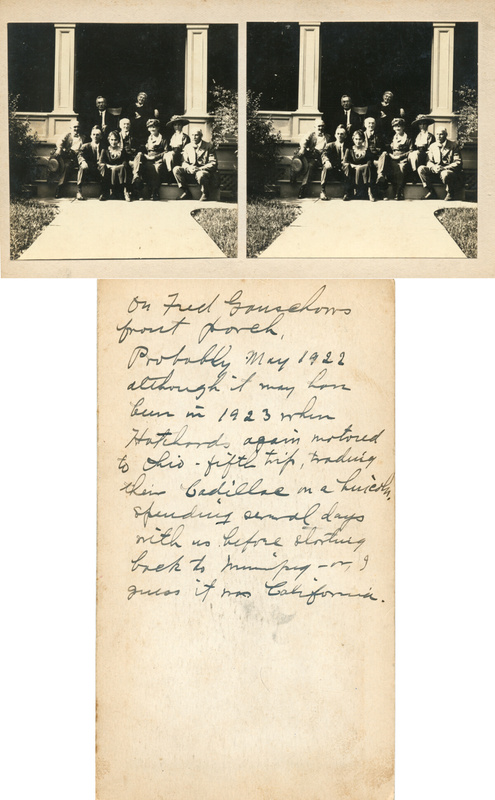 On Fred Gauschows
front porch,
Probably May 1922
although it may have
been in 1923 when
Hatchards again motored
to Ohio - fifth trip, trading
their Cadillac on a Lincoln,
spending several days
with us before starting
back to Winnipeg - or I
guess it was California.